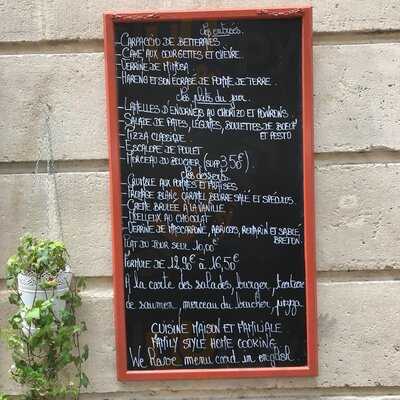 Les entrées.
-CARPACCIO DE BETTERAVES
-CAKE AUX COURGETTES ET CHÈVRE.
-VERRINE DE MIMOSA
-HARENG ET SON ÉCRASÉ DE POMME DE TERRE.
Les plats du jour.
-LAMELLES D'ENCORNETS AU CHORIZO ET POIVRONS.
-SALADE DE PATES, LÉGUMES, BOULETTES DE BOEUF
ET PESTO
-PIZZA CLASSIQUE
-ESCALOPE DE POULET
-MORCEAU DU BOUCHER (SUPP 3,50€)
Les desserts.
-CRUMBLE AUX POMMES ET FRAISES
-FROMAGE BLANC CARAMEL BEURRE SALÉ ET SPÉCULOS.
-CRÈME BRULÉE A LA VANILLE
-MOELLEUX AU CHOCOLAT
-VERRINE DE MASCARPONE, ABRICOTS, ROMARIN ET SABLÉ
BRETON.
PLAT DU JOUR SEUL 10,00€
FORMULE DE 12,90€ à 16,50€
A la carte des salades, burger, tartare
de saumon, morceau du boucher, pizza
CUISINE MAISON ET FAMILIALE
FAMILY STYLE HOME COOKING
We have menu card in english.